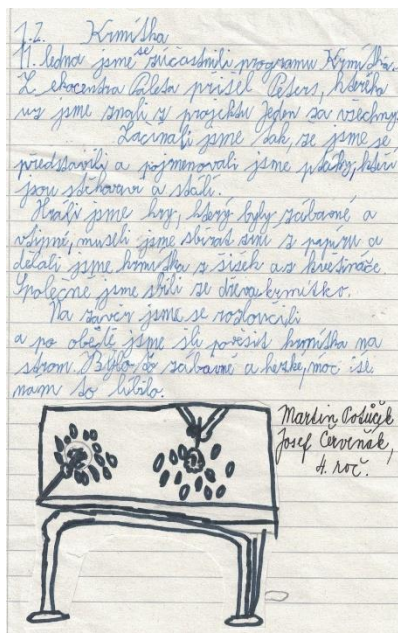 1.2. Krmítka
11. ledna jsme se zúčastnili programu Krmítka.
Z ekocentra Paleta přišel Peters, kterého
uz jsme znali z projektu Jeden za všechny.
Začínali jsme tak, ze jsme se
představili a pojmenovali jsme ptáky, kteří
jsou stěhovaví a stálí.
Hráli jsme hry, který byly zábavné a
vtipné, museli jsme sbírat z papíru a
dělali jsme krmítka z šišek a z květináče.
Společně jsme sbili ze dřeva krmítko.
Na závěr jsme se rozloučili
a po obědě jsme šli pověsit krmítka na
strom. Bylo to zábavné a hezké, moc se
nám to líbilo.
Martin Potůček
Josef Červeňák,
4. roč.